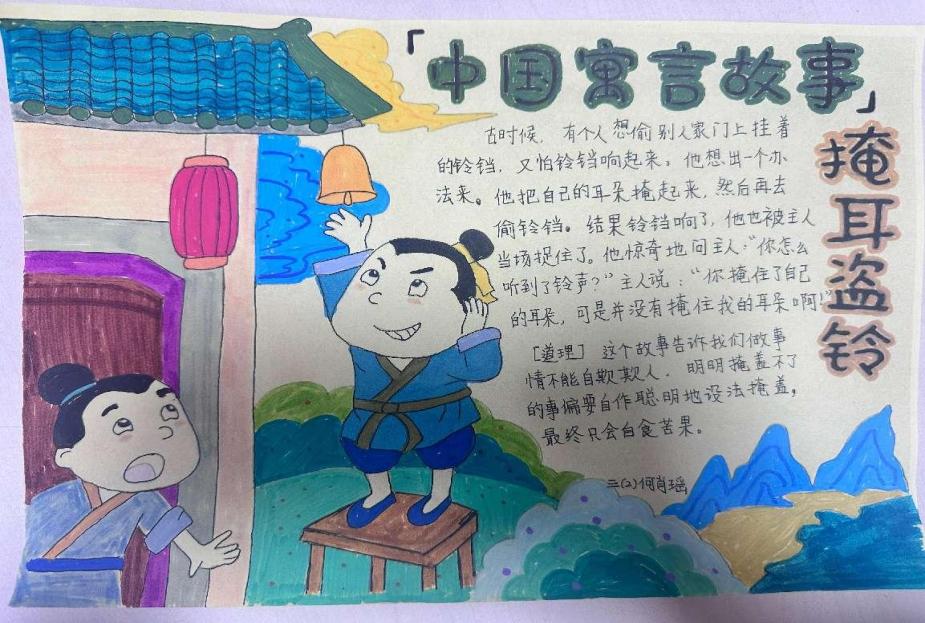 「中国寓言故事」
掩耳盗铃
古时候，有个人想偷别人家门上挂着
的铃铛，又怕铃铛响起来。他想出一个办
法来。他把自己的耳朵掩起来，然后再去
偷铃铛。结果铃铛响了，他也被主人
当场捉住了。他惊奇地问主人："你怎么
听到了铃声？"主人说："你掩住了自己
的耳朵，可是并没有掩住我的耳朵啊！"
[道理] 这个故事告诉我们做事
情不能自欺欺人，明明掩盖不了
的事偏要自作聪明地设法掩盖，
最终只会自食苦果。
二(2)何肖瑶